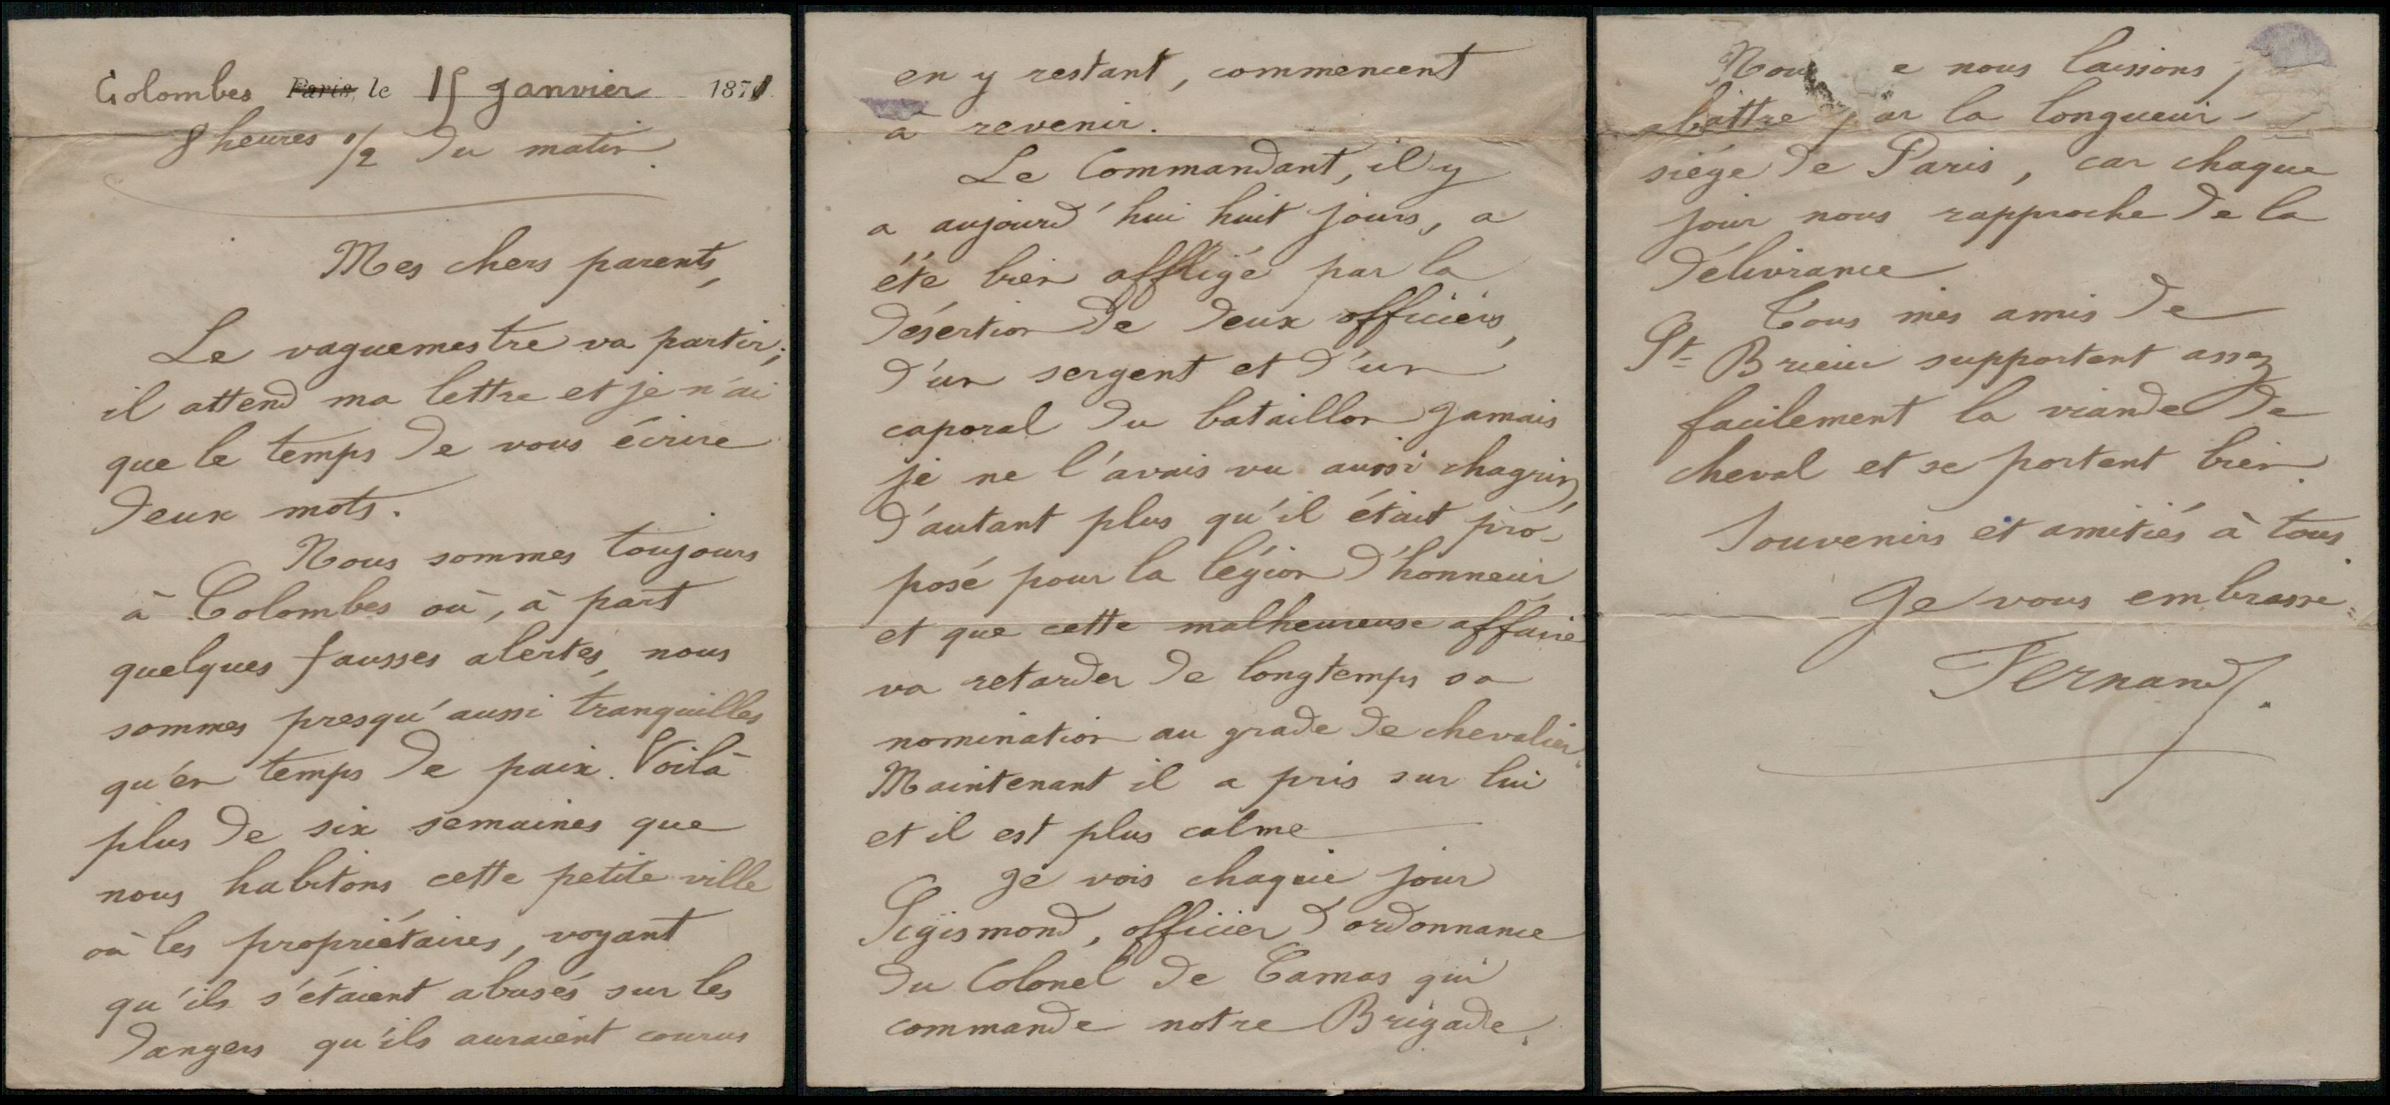 Colombes Paris, le 15 Janvier 1871
8 heures 1/2 du matin.
Mes chers parents,
Le vaguemestre va partir;
il attend ma lettre et je n'ai
que le temps de vous écrire
deux mots.
Nous sommes toujours
à Colombes où, à part
quelques fausses alertes, nous
sommes presqu'aussi tranquilles
qu'en temps de paix. Voilà
plus de six semaines que
nous habitons cette petite ville
où les propriétaires, voyant
qu'ils s'étaient abusés sur les
dangers qu'ils auraient courus
en y restant, commencent
à revenir.
Le Commandant, il y
a aujourd'hui huit jours, a
été bien affligé par la
désertion de deux officiers,
d'un sergent et d'un
caporal du bataillon Jamais
je ne l'avais vu aussi chagrin,
d'autant plus qu'il était pro-
posé pour la légion d'honneur
et que cette malheureuse affaire
va retarder de longtemps sa
nomination au grade de chevalier.
Maintenant il a pris sur lui
et il est plus calme
Je vois chaque jour
Sigismond, officier d'ordonnance
du Colonel de Camas qui
commande notre Brigade.
Nous e nous laissons
abattre par la longueur
siége de Paris, car chaque
jour nous rapproche de la
délivrance
Tous mes amis de
St Brieuc supportent assez
facilement la viande de
cheval et se portent bien.
Souvenirs et amitiés à tous.
Je vous embrasse
Fernand.